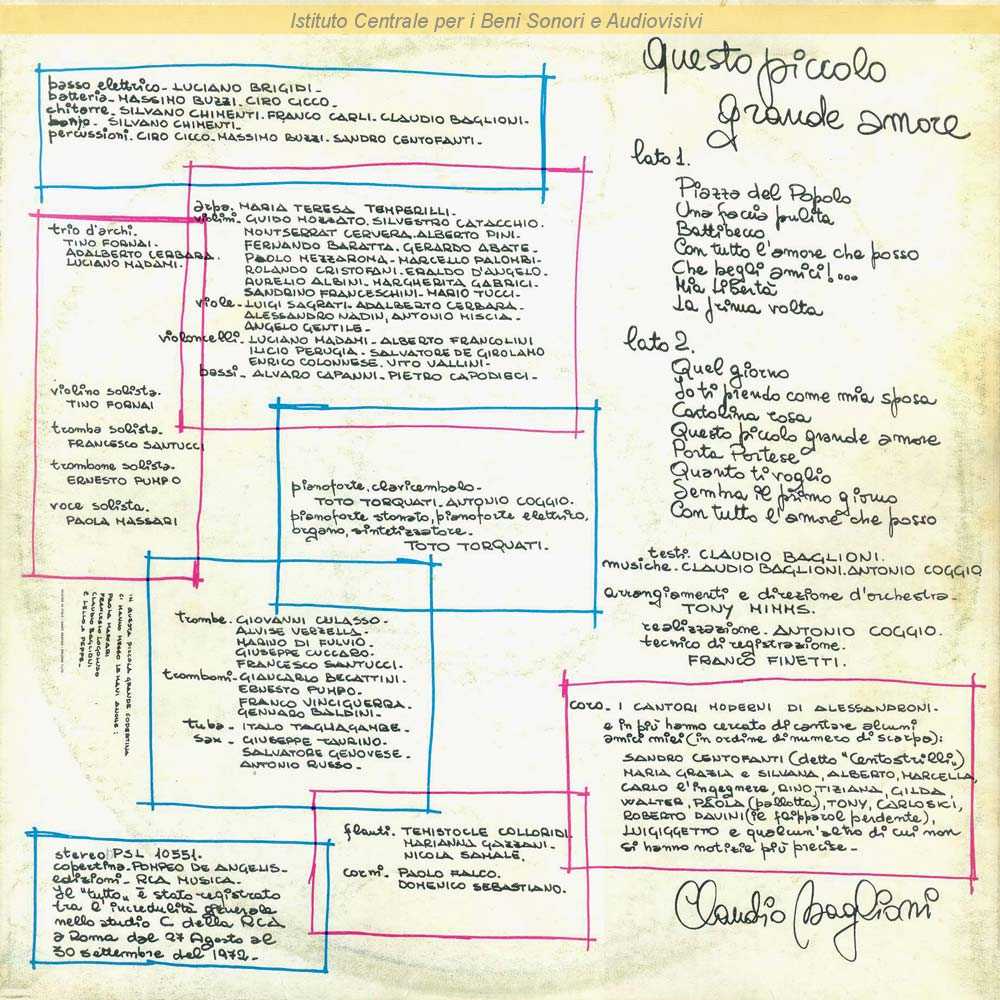 Istituto Centrale per i Beni Sonori e Audiovisivi
Questo piccolo
grande amore
lato 1.
Piazza del Popolo
Una faccia pulita
Battibecco
Con tutto l'amore che posso
Che begli amici!...
Mia libertà
La prima volta
lato 2.
Quel giorno
Io ti prendo come mia sposa
Cartolina rosa
Questo piccolo grande amore
Porta Portese
Quanto ti voglio
Sembra il primo giorno
Con tutto l'amore che posso
testi. CLAUDIO BAGLIONI.
musiche. CLAUDIO BAGLIONI. ANTONIO COGGIO
arrangiamenti e direzione d'orchestra-
TONY MIMMS.
realizzazione. ANTONIO COGGIO.
tecnico di registrazione.
FRANCO FINETTI.
basso elettrico- LUCIANO BRIGIDI-
batteria- MASSIMO BUZZI. CIRO CICCO-
chitarre. SILVANO CHIMENTI. FRANCO CARLI. CLAUDIO BAGLIONI-
banjo. SILVANO CHIMENTI-
percussioni. CIRO CICCO. MASSIMO BUZZI. SANDRO CENTOFANTI-
trio d'archi.
TINO FORNAI.
ADALBERTO CERBARA.
LUCIANO MADAMI.
violino solista.
TINO FORNAI
tromba solista.
FRANCESCO SANTUCCI
trombone solista.
ERNESTO PUMPO
voce solista.
PAOLA MASSARI
arpa. MARIA TERESA TEMPERILLI-
violini. GUIDO MOZZATO. SILVESTRO CATACCHIO.
MONTSERRAT CERVERA. ALBERTO PINI.
FERNANDO BARATTA. GERARDO ABATE-
PAOLO MEZZAROMA- MARCELLO PALOMBI-
ROLANDO CRISTOFANI. ERALDO D'ANGELO.
AURELIO ALBINI. MARGHERITA GABRICI-
SANDRINO FRANCESCHINI- MARIO TUCCI-
viole- LUIGI SAGRATI. ADALBERTO CERBARA-
ALESSANDRO NADIN, ANTONIO MISCIA-
ANGELO GENTILE-
violoncelli. LUCIANO MADAMI- ALBERTO FRANCOLINI
ILICIO PERUGIA- SALVATORE DE GIROLAMO
ENRICO COLONNESE. VITO VALLINI-
bassi- ALVARO CAPANNI. PIETRO CAPODIECI-
pianoforte, clavicembalo-
TOTO TORQUATI. ANTONIO COGGIO.
pianoforte stonato, pianoforte elettrico,
organo, sintetizzatore.
TOTO TORQUATI.
trombe. GIOVANNI CULASSO-
ALVISE VERZELLA-
MARINO DI FULVIO.
GIUSEPPE CUCCARO.
FRANCESCO SANTUCCI.
tromboni- GIANCARLO BECATTINI.
ERNESTO PUMPO.
FRANCO VINCIGUERRA.
GENNARO BALDINI-
tuba- ITALO TAGLIAGAMBE-
sax- GIUSEPPE TAURINO.
SALVATORE GENOVESE.
ANTONIO RUSSO-
IN QUESTA PICCOLA GRANDE COPERTINA
CI HANNO MESSO LE MANI ANCHE:
PAOLA MASSARI
FRANCESCO LOGOLUSO
CLAUDIO BAGLIONI
flauti. TEMISTOCLE COLLORIDI.
MARIANNA GAZZANI-
NICOLA SAMALE.
corni. PAOLO FALCO.
DOMENICO SEBASTIANO.
coro- I CANTORI MODERNI DI ALESSANDRONI-
e in più hanno cercato di cantare alcuni
amici miei (in ordine di numero di scarpa):
SANDRO CENTOFANTI (detto "Centostrilli")
MARIA GRAZIA e SILVANA, ALBERTO, MARCELLA,
CARLO l'ingegnere, RINO, TIZIANA, GILDA,
WALTER, PAOLA (pallotta), TONY, CARLOSICI,
ROBERTO DAVINI (il frippatol perdente),
LUIGIGGETTO e qualcun'altro di cui non
si hanno notizie più precise-
stereo PSL 10551.
copertina- POMPEO DE ANGELIS-
edizioni- RCA MUSICA.
Il "tutto" è stato registrato
tra l'incredulità generale
nello studio C della RCA
a Roma dal 27 Agosto al
30 settembre del 1972-
Claudio Baglioni